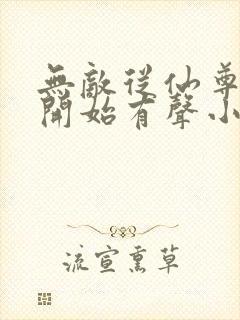 無敵從仙尊
開始有聲小
流宣熏草